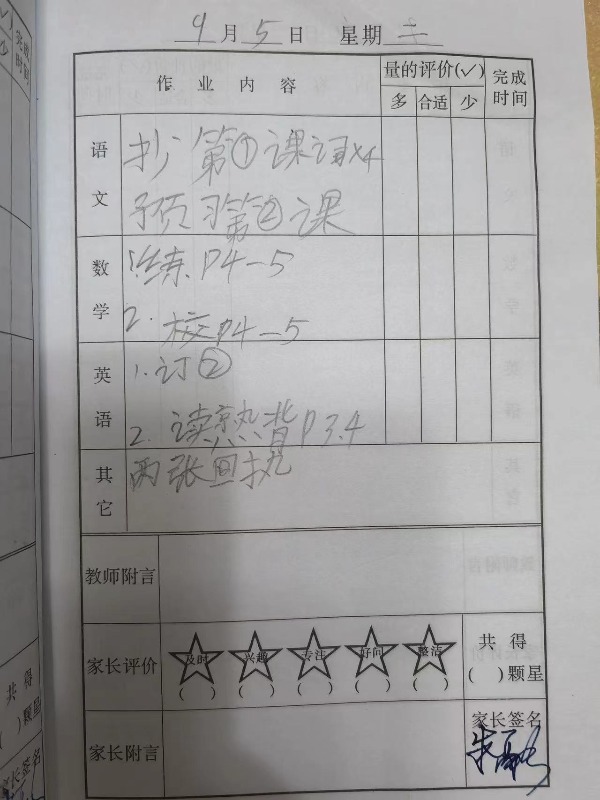 9月5日 星期二
作业内容 量的评价(✓) 完成时间
多 合适 少
语文 抄第①课词×4
预习第②课
数学 1.练P4—5
2.校P4—5
英语 1.订②
2.读熟背P3.4
其它 两张回执
教师附言
家长评价 及时 兴趣 专注 好问 整洁 共得
( ) ( ) ( ) ( ) ( ) ( )颗星
家长附言 家长签名
共得
( )颗星
家长签名